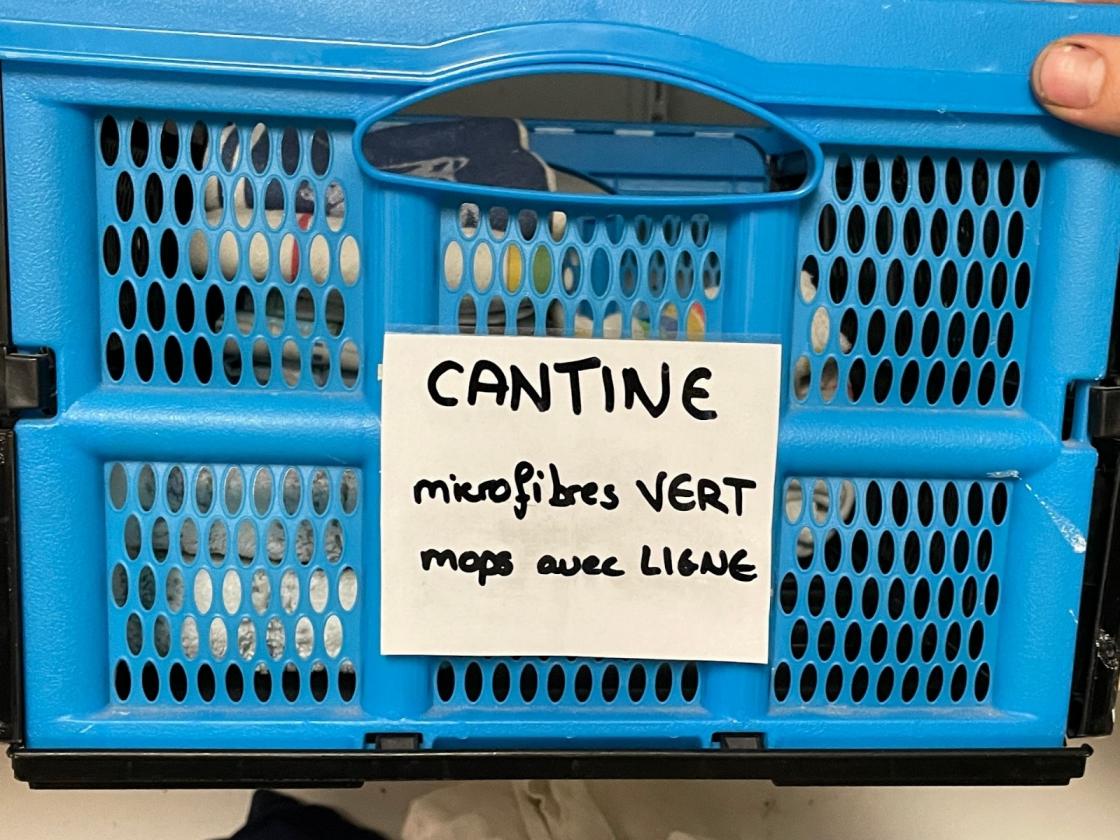 CANTINE
microfibres VERT
mops avec LIGNE